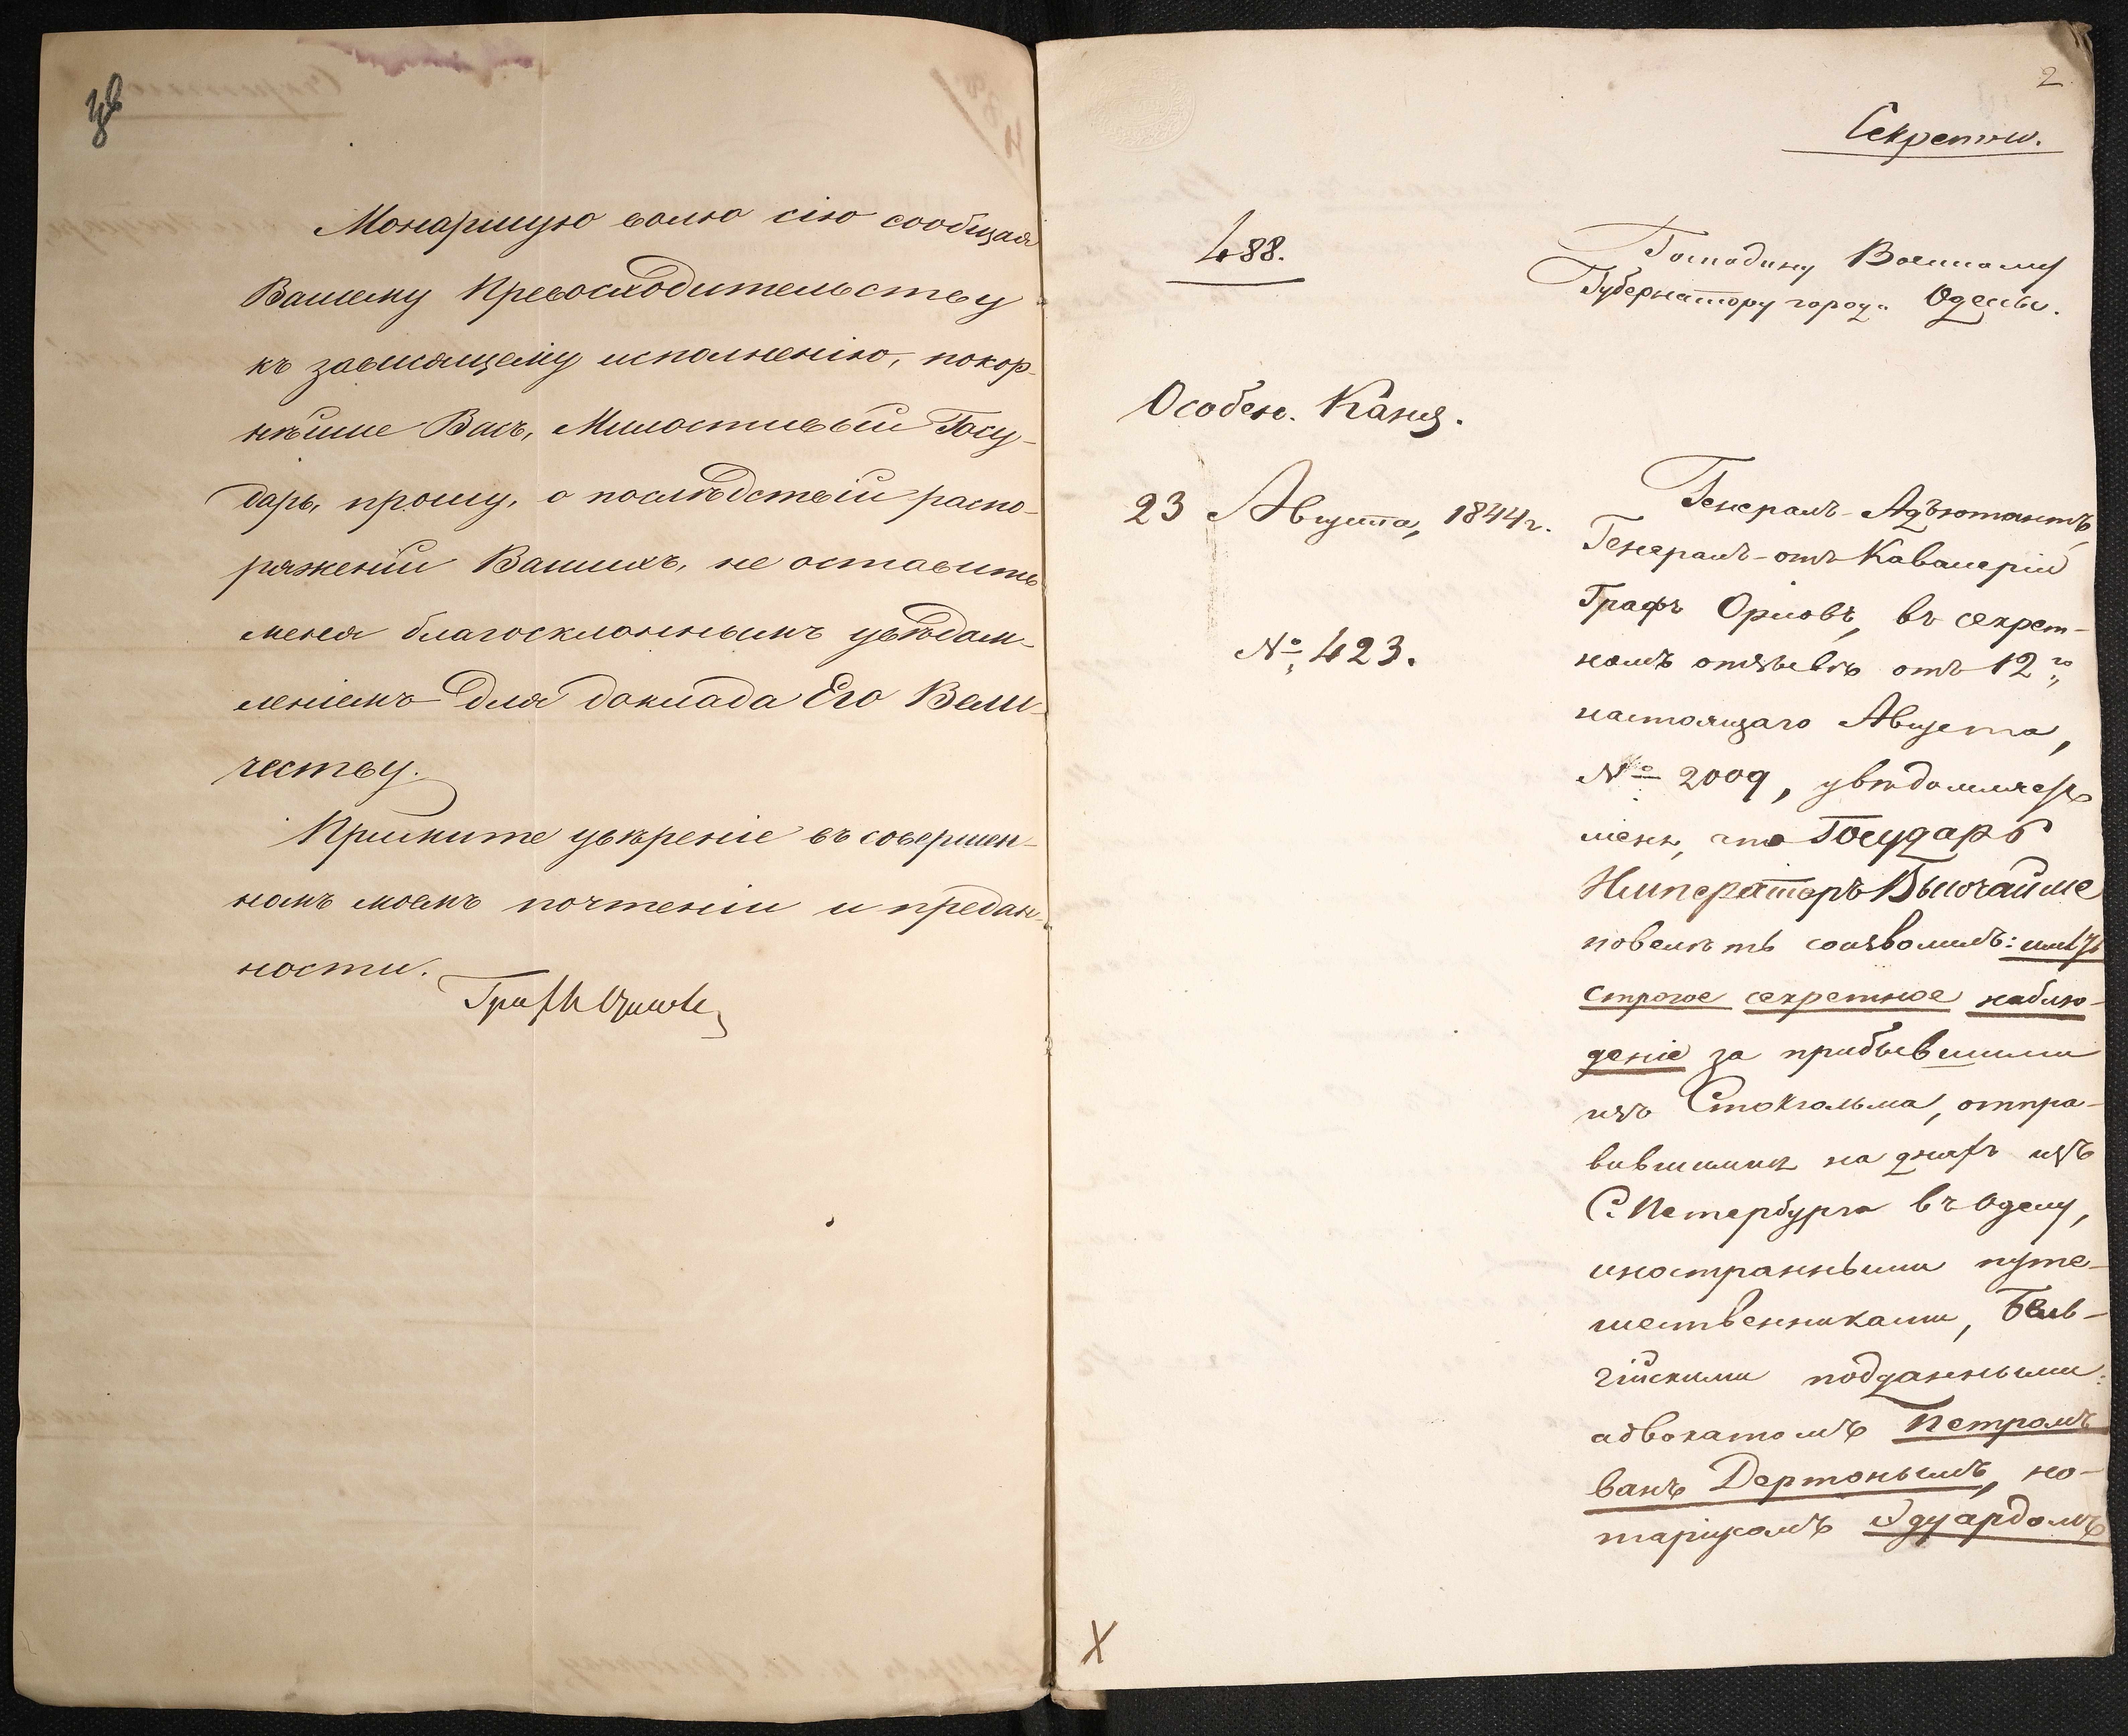 Монаршую волю сію сообщая
Вашему Превосходительству
къ зависящему исполненію, покор-
нѣйше Васъ, Милостивый Госу-
дарь, прошу, о послѣдствіи распо-
ряженій Вашихъ, не оставить
меня благосклоннымъ увѣдом-
леніемъ для доклада Его Вели-
честву.
Примите увѣреніе въ совершен-
номъ моемъ почтеніи и предан-
ности.
Графъ Орловъ
2
Секретно.
488.
Господину Военному
Губернатору города Одессы.
Особен. Канц.
23 Августа, 1844 г.
№ 423.
Генералъ-Адъютантъ,
Генералъ-отъ-Кавалеріи
Графъ Орловъ, въ секрет-
номъ отзывѣ отъ 12го
настоящаго Августа,
№ 2009, увѣдомляетъ
меня, что Государь
Императоръ Высочайше
повелѣть соизволилъ: имѣть
строгое секретное наблю-
деніе за прибывшими
изъ Стокгольма, отпра-
вившимися на дняхъ изъ
С. Петербурга въ Одессу,
иностранными путе-
шественниками, Бель-
гійскими подданными:
адвокатомъ Петромъ
ванъ Дертонымъ, но-
таріусомъ Эдуардомъ
X